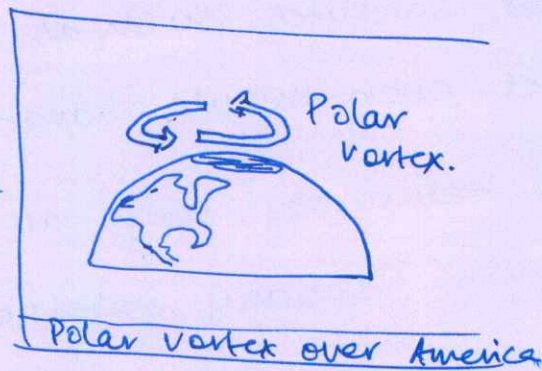 Polar
vortex.
Polar vortex over America